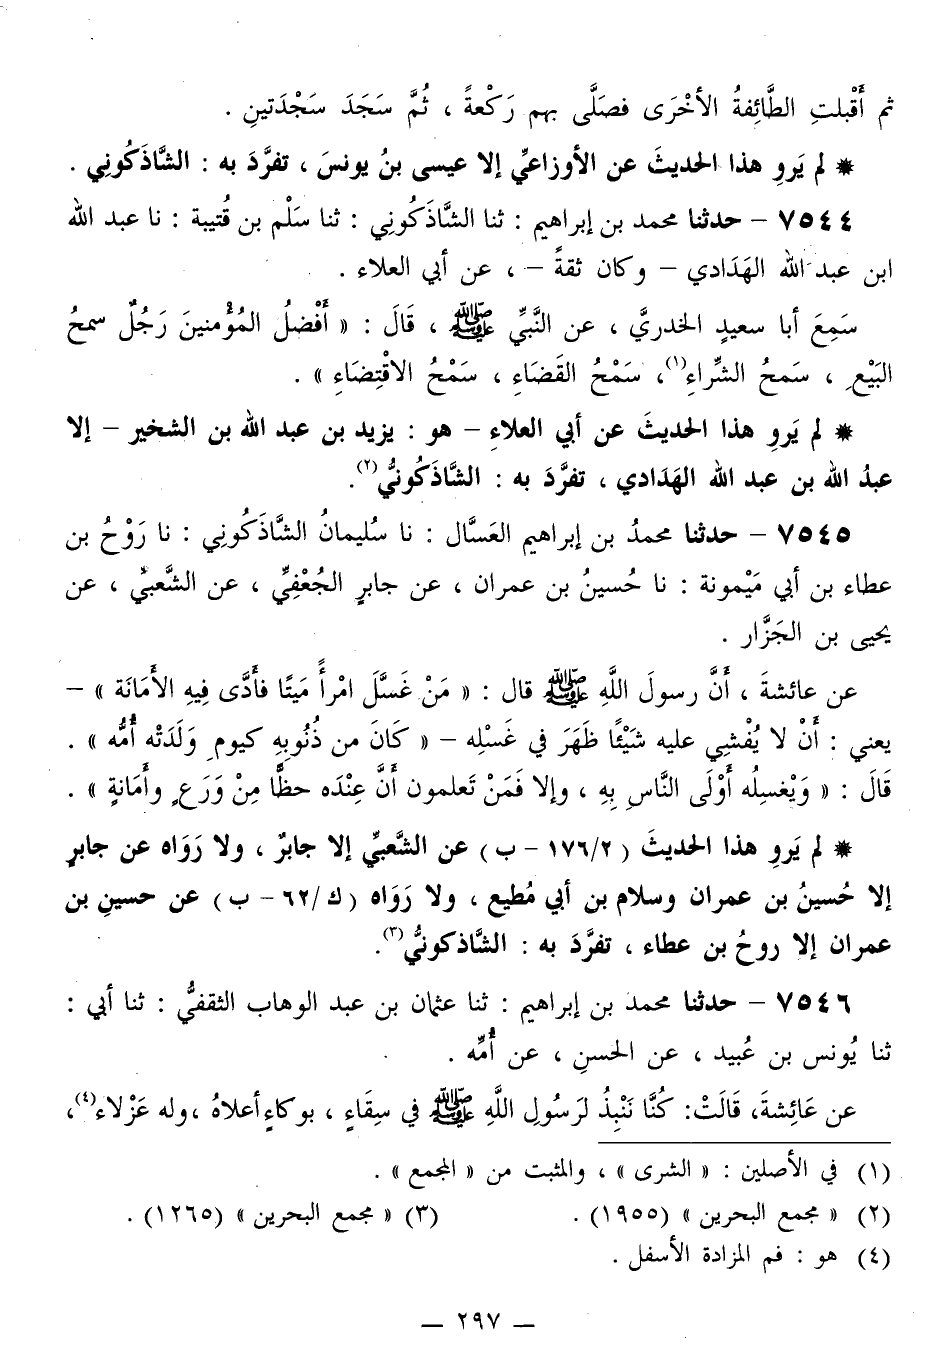 ثم أَقْبلتِ الطَّائِفةُ الأخْرَى فصَلَّى بهم رَكْعةً ، ثُمَّ سَجَدَ سَجْدَتينِ .
* لم يَروِ هذا الحديثَ عن الأوزاعيِّ إلا عيسى بنُ يونسَ ، تفرَّدَ به : الشَّاذَكُوني .
٧٥٤٤ – حدثنا محمد بن إبراهيم : ثنا الشَّاذَكُوني : ثنا سَلْم بن قُتيبة : نا عبد الله
ابن عبد الله الهَدَادي – وكان ثقةً – ، عن أبي العلاء .
سَمِعَ أبا سعيدٍ الخدريَّ ، عن النَّبيِّ ﷺ ، قَالَ : « أَفْضلُ المُؤْمنينَ رَجُلٌ سمحُ
البَيْعِ ، سَمحُ الشِّراءِ(١)، سَمْحُ القَضَاءِ ، سَمْحُ الاقْتِضَاءِ » .
* لم يَروِ هذا الحديثَ عن أبي العلاءِ – هو : يزيد بن عبد الله بن الشخير – إلا
عبدُ الله بن عبد الله الهَدَادي ، تفرَّدَ به : الشَّاذَكُونيُّ(٢).
٧٥٤٥ – حدثنا محمدُ بن إبراهيم العَسَّال : نا سُليمانُ الشَّاذَكُوني : نا رَوْحُ بن
عطاء بن أبي مَيْمونة : نا حُسينُ بن عمران ، عن جابرٍ الجُعْفِيِّ ، عن الشَّعبيِّ ، عن
يحيى بن الجَزَّار .
عن عائشةَ ، أَنَّ رسولَ اللَّهِ ﷺ قال : « مَنْ غَسَّلَ امْرأً مَيتًا فأَدَّى فِيهِ الأمَانَة » –
يعني : أَنْ لا يُفْشِي عليه شَيْئًا ظهَرَ في غَسْلِه – « كَانَ من ذُنُوبِهِ كيومِ وَلَدَتْه أُمُّه » .
قَالَ : « وَيْغسِلُه أَوْلَى النَّاسِ بِهِ ، وإلا فَمَنْ تَعلمون أَنَّ عِنْدَه حظًّا مِنْ وَرَعٍ وأَمَانةٍ » .
* لم يَروِ هذا الحديثَ (١٧٦/٢ – ب) عن الشَّعبيِّ إلا جابرٌ ، ولا رَوَاه عن جابرٍ
إلا حُسينُ بن عمران وسلام بن أبي مُطيع ، ولا رَوَاه (ك/٦٢ – ب) عن حسينِ بن
عمران إلا روحُ بن عطاء ، تفرَّدَ به : الشَّاذكونيُّ(٣).
٧٥٤٦ – حدثنا محمد بن إبراهيم : ثنا عثمان بن عبد الوهاب الثقفيُّ : ثنا أبي :
ثنا يُونس بن عُبيد ، عن الحسنِ ، عن أُمِّه .
عن عَائِشةَ، قَالَتْ: كُنَّا نَنْبِذُ لرَسُولِ اللَّهِ ﷺ في سِقَاءٍ ، بوكاءٍ أعلاهُ ،وله عَزْلاء(٤)،
(١) في الأصلين : « الشرى » ، والمثبت من « المجمع » .
(٢) « مجمع البحرين » (١٩٥٥) . (٣) « مجمع البحرين » (١٢٦٥) .
(٤) هو : فم المزادة الأسفل .
– ٢٩٧ –